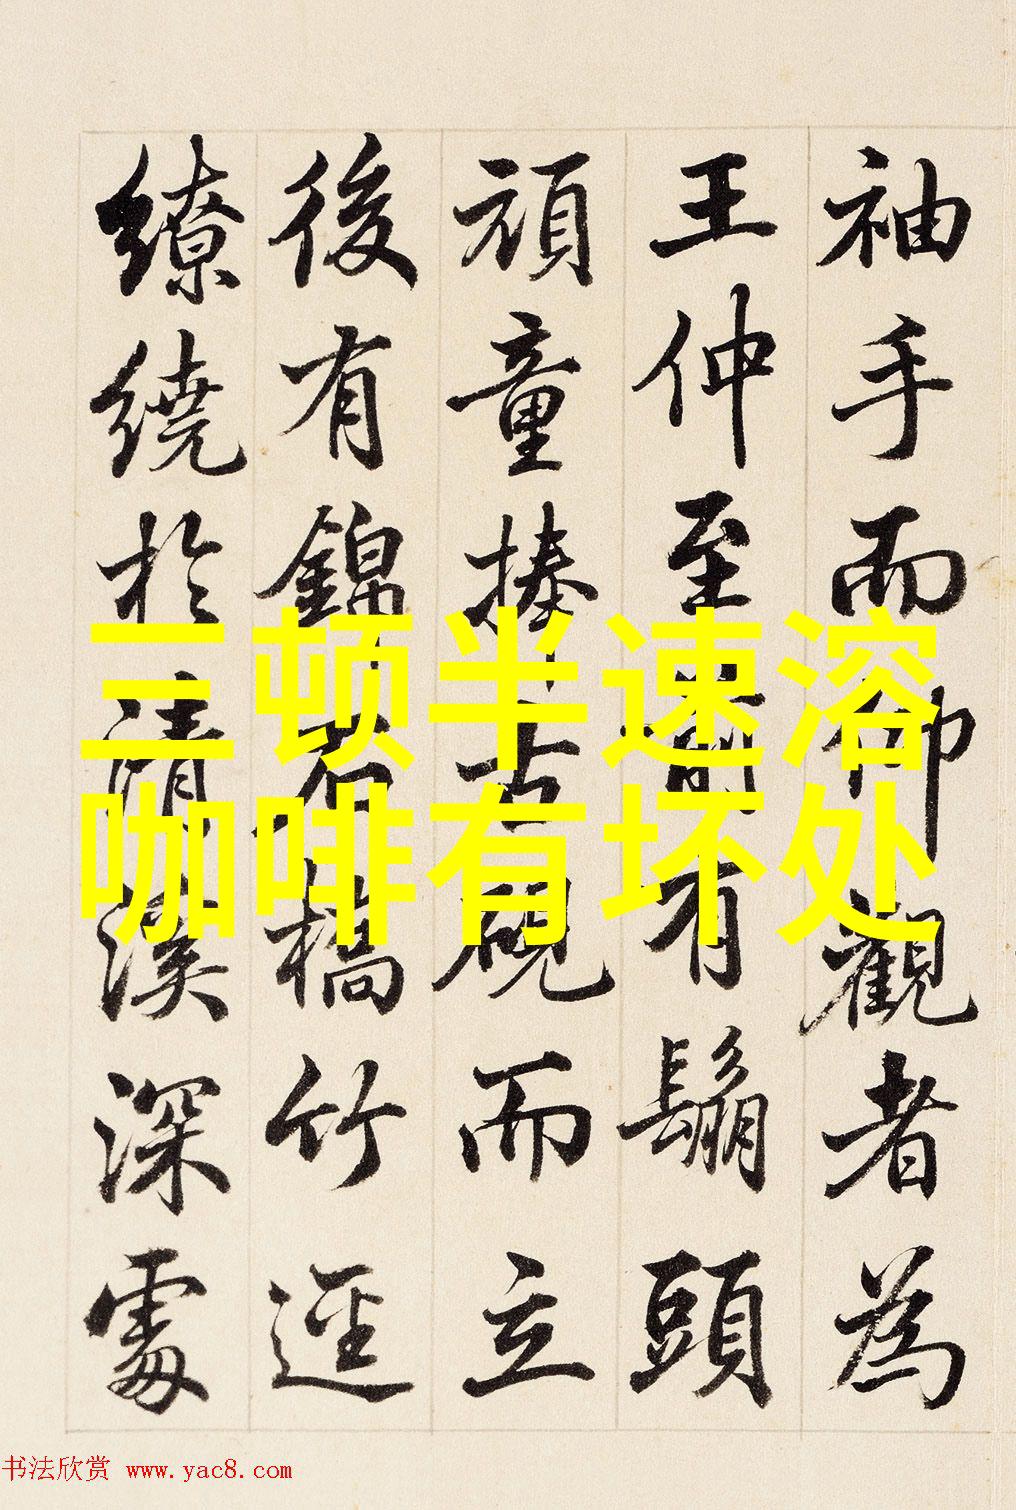 袖手而仰觀者為
王仲至前有鬅頭
頑童捧古硯而立
後有錦石橋竹逕
繚繞於清溪深處
三顿半速溶
咖啡有坏处
书法欣赏 www.yac8.com